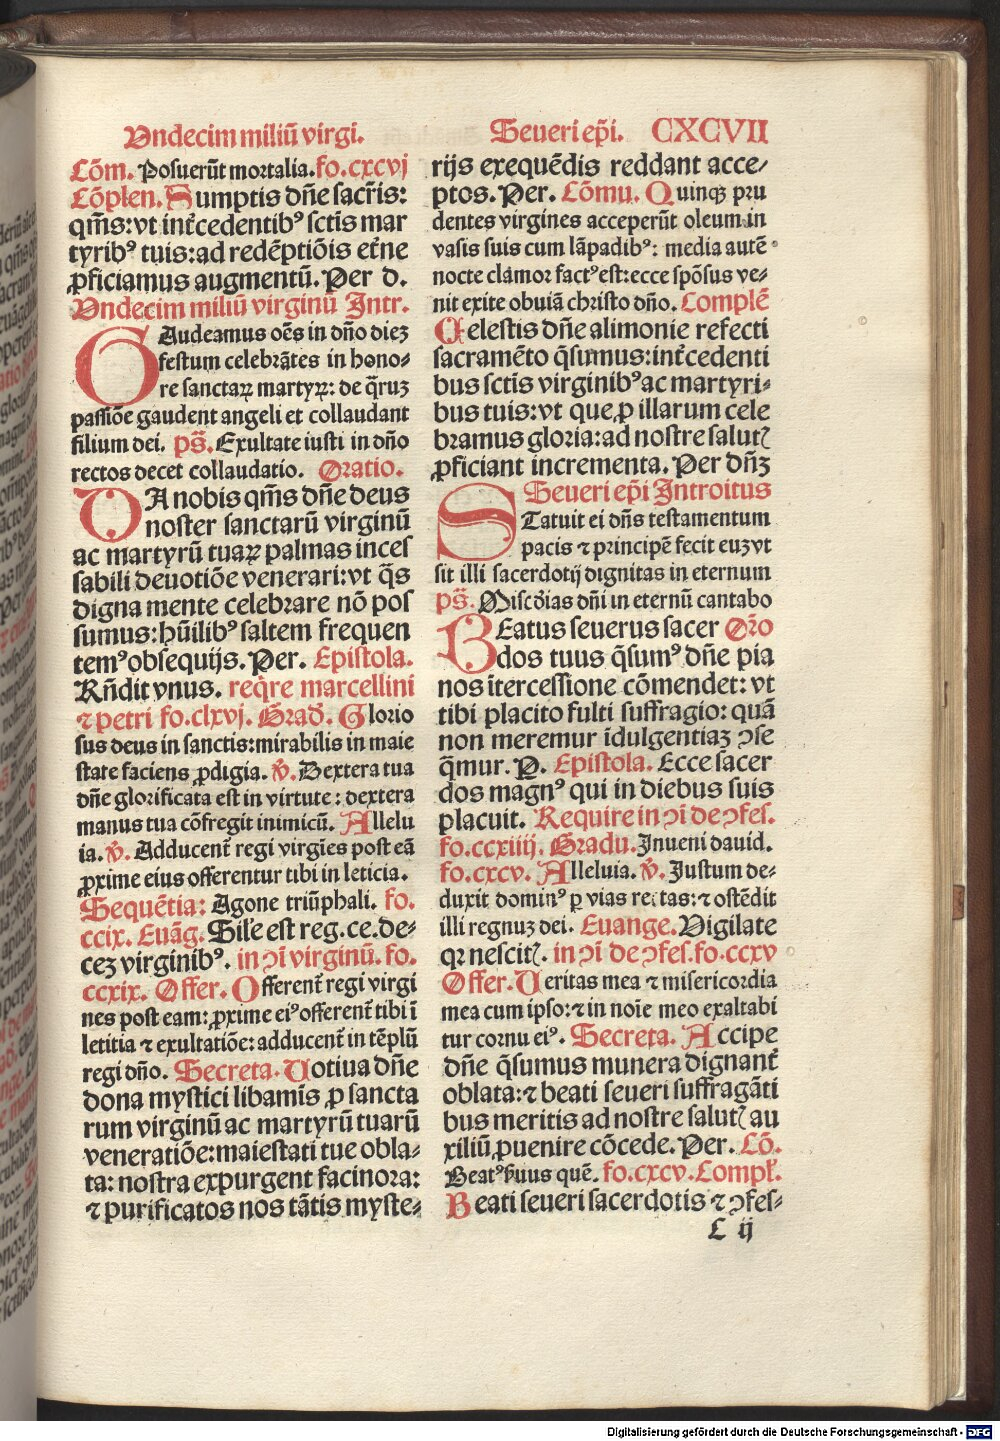 Vndecim miliū virgi.
Seueri ep̄i. CXCVII
Cōm. Posuerūt mortalia. fo. cxcvj
Cōplen. Sumptis dn̄e sacr̄is:
qm̄s: vt int̄cedentibꝰ sctīs mar
tyribꝰ tuis: ad redēptiōis et̄ne
ꝓficiamus augmentū. Per d.
Vndecim miliū virginū Intr.
GAudeamus oēs in dn̄o diez
festum celebrātes in hono-
re sanctaꝝ martyꝝ: de q̄ruz
passiōe gaudent angeli et collaudant
filium dei. ps̄. Exultate iusti in dn̄o
rectos decet collaudatio. Oratio.
DA nobis qm̄s dn̄e deus
noster sanctarū virginū
ac martyrū tuaꝝ palmas inces
sabili deuotiōe venerari: vt q̄s
digna mente celebrare nō pos
sumus: hūilibꝰ saltem frequen
temꝰ obsequijs. Per. Epistola.
Rn̄dit vnus. req̄re marcellini
⁊ petri fo. clxvj. Grad̄. Glorio
sus deus in sanctis: mirabilis in maie
state faciens ꝓdigia. v̄. Dextera tua
dn̄e glorificata est in virtute: dextera
manus tua cōfregit inimicū. Allelu
ia. v̄. Adducent̄ regi virgīes post eā
ꝓxime eius offerentur tibi in leticia.
Sequētia: Agone triūphali. fo.
ccix. Euāg. Sil̄e est reg. ce. de-
cez virginibꝰ. in ↄi virginū. fo.
ccxix. Offer. Offerent̄ regi virgi
nes post eam: ꝓxime eiꝰ offerent̄ tibi ī
letitia ⁊ exultatiōe: adducent̄ in tēplū
regi dn̄o. Secreta. Uotiua dn̄e
dona mystici libamīs ꝓ sancta
rum virginū ac martyrū tuarū
veneratiōe: maiestati tue obla-
ta: nostra expurgent facinora:
⁊ purificatos nos tātis myste-
rijs exequēdis reddant acce-
ptos. Per. Cōmu. Quinqꝫ pru
dentes virgines acceperūt oleum in
vasis suis cum lāpadibꝰ: media autē
nocte clamor factꝰ est: ecce spōsus ve-
nit exite obuiā christo dn̄o. Complē
Celestis dn̄e alimonie refecti
sacramēto q̄sumus: int̄cedenti
bus sctīs virginibꝰ ac martyri-
bus tuis: vt que ꝓ illarum cele
bramus gloria: ad nostre salutꝭ
ꝓficiant incrementa. Per dn̄z
Seueri ep̄i Introitus
STatuit ei dn̄s testamentum
pacis ⁊ principē fecit euz vt
sit illi sacerdotij dignitas in eternum
ps̄. Misc̄dias dn̄i in eternū cantabo
BEatus seuerus sacer Or̄o
dos tuus q̄sumꝰ dn̄e pia
nos ītercessione cōmendet: vt
tibi placito fulti suffragio: quā
non meremur īdulgentiaz ↄse
q̄mur. P. Epistola. Ecce sacer
dos magnꝰ qui in diebus suis
placuit. Require in ↄi de ↄfes.
fo. ccxiiij. Gradu. Inueni dauid.
fo. cxcv. Alleluia. v̄. Justum de-
duxit dominꝰ ꝑ vias rectas: ⁊ ostēdit
illi regnuz dei. Euange. Vigilate
qꝛ nescitꝭ. in ↄi de ↄfes. fo. ccxv
Offer. Ueritas mea ⁊ misericordia
mea cum ipso: ⁊ in noīe meo exaltabi
tur cornu eiꝰ. Secreta. Accipe
dn̄e q̄sumus munera dignant̄
oblata: ⁊ beati seueri suffragāti
bus meritis ad nostre salutꝭ au
xiliū ꝓuenire cōcede. Per. Cō.
Beatꝰ ẜuus quē. fo. cxcv. Compl̄.
Beati seueri sacerdotis ⁊ ↄfes-
C ij
Digitalisierung gefördert durch die Deutsche Forschungsgemeinschaft - DFG